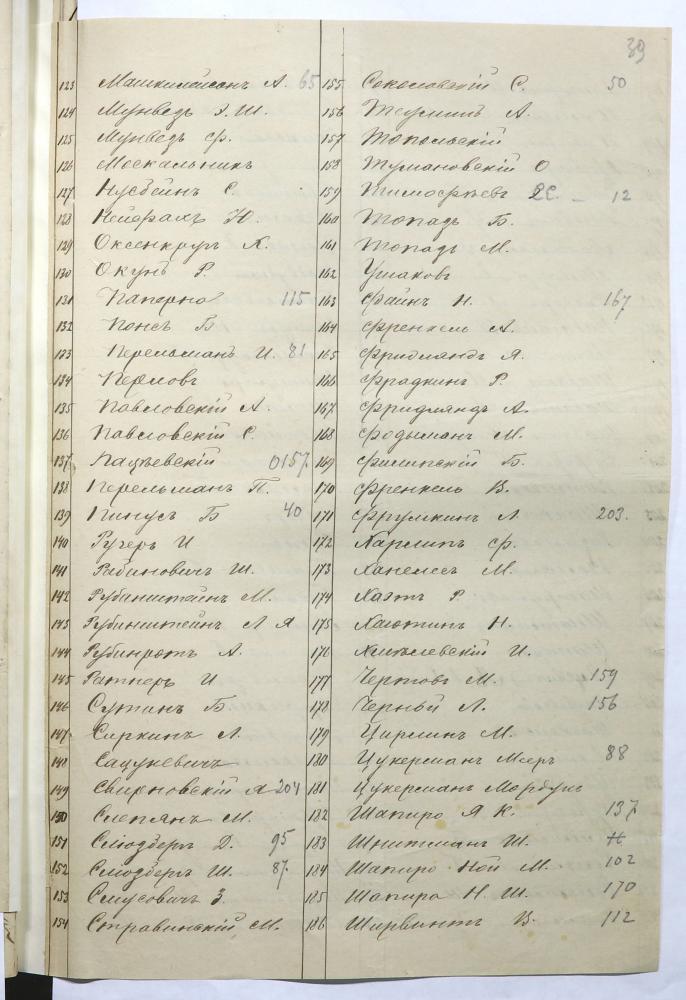 39
123 Машкилейсонъ А. 65
124 Мунведъ І. Ш.
125 Мунведъ Ф.
126 Москальникъ
127 Нусбейнъ С.
128 Нейфахъ Ю.
129 Оксенкругъ Х.
130 Окунь Р.
131 Паперно 115
132 Понсъ Б
133 Перельманъ И. 81
134 Перловъ
135 Павловскій А.
136 Павловскій С.
137 0157.
138 Перельманъ П.
139 Пинусъ Б 40
140 Ручеръ И
141 Рабиновичъ Ш.
142 Рубинштейнъ М.
143 Рубинштейнъ Л Я
144 Рубинротъ А.
145 Ратнеръ И
146 Сутинъ Б
147 Сиркинъ Л.
148 Сацукевичъ
149 Свирновскій Я 204
150 Слепянъ М.
151 Слюзбергъ Д. 95
152 Слюзбергъ Ш. 87.
153 Смусовичъ З.
154 Стравинскій М.
155 Соколовскій С. 50
156 Теуминъ А.
157 Топольскій
158 Тумановскій О
159 Тимофѣевъ 12
160 Топазъ Б.
161 Топазъ М.
162 Ушаковъ
163 Файнъ Н. 167
164 Френкель А.
165 Фридляндъ Я.
166 Фрадкинъ Р.
167 Фридляндъ А.
168 Фодыманъ М.
169 Филипскій Б.
170 Френкель В.
171 Фрумкинъ Л 203.
172 Харлипъ Ф.
173 Ханелесъ М.
174 Хазтъ Р.
175 Хаютинъ Н.
176 Хмѣлевскій И.
177 Чертовъ М. 159
178 Черный Л. 156
179 Цирлинъ М.
180 Цукерманъ Мееръ 88
181 Цукерманъ Мордухъ
182 Шапиро Я К. 137
183 Шнитманъ Ш.
184 Шапиро Ной М. 102
185 Шапиро Н. Ш. 170
186 Ширвинтъ В. 112